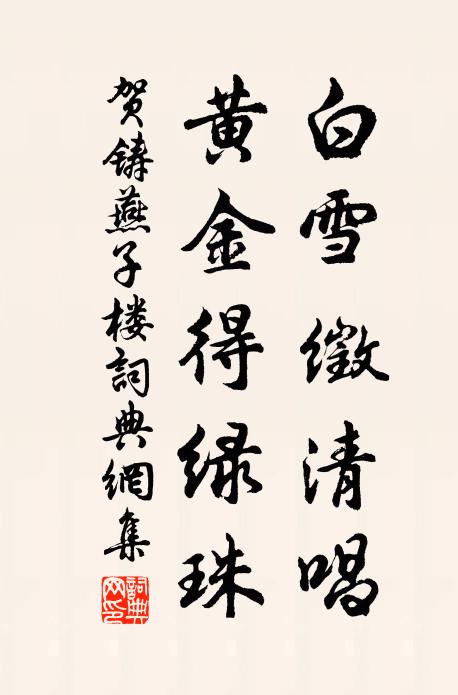 白雪徵清唱
黄金得绿珠
贺铸燕子楼詞典網集
詞典网印